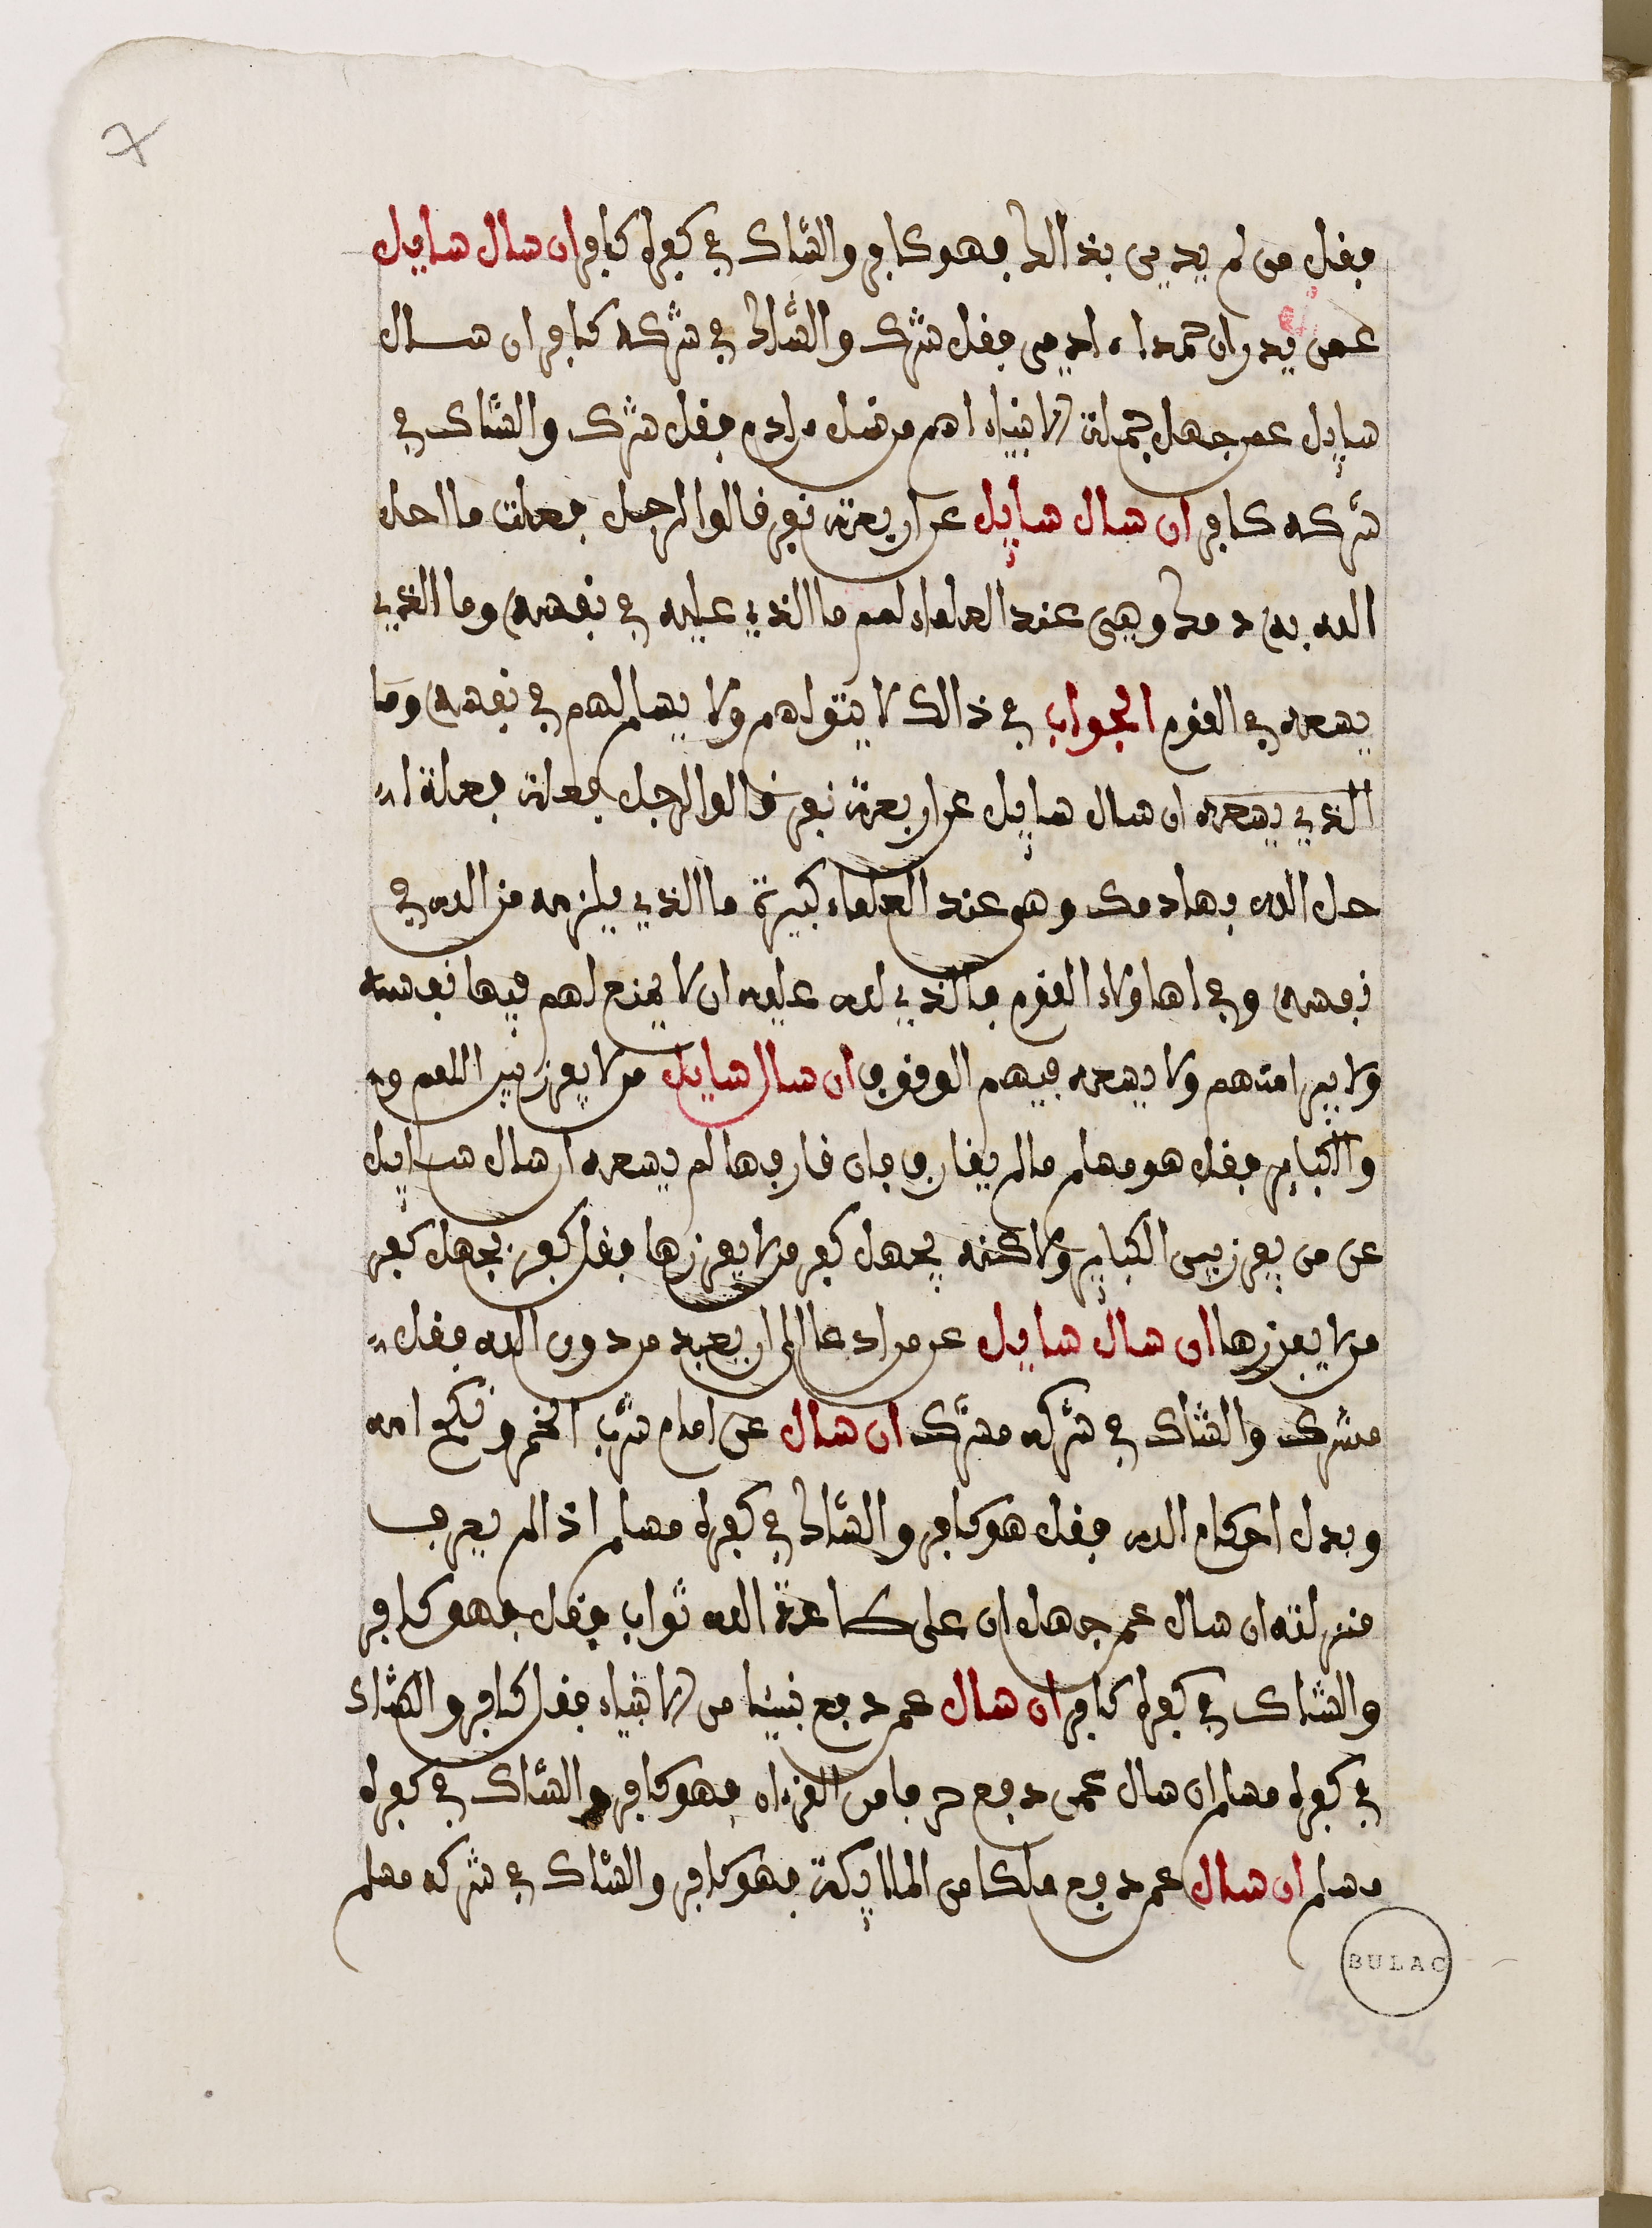 فقل من لم يدين بذالك فهو كافر والشاك في كفره كافر ان سال سايل
عمن يدر ان محمداء ادمى فقل شرك والشاك في شركه كافر ان سال
سايل عمن جهل جملة الانبياء اهم من نسل ءادم فقل شرك والشاك في
شركه كافر ان سال سايل عن اربعة نفر قالوا لرجل فعلت ما احل
الله به دمك وهي عند العلماء لمم ما الذي عليه في نفسه وما الذي
يسعه في القوم الجواب في ذالك لا يتولاهم ولا يسلم لهم في نفسه وما
الذي يسعه ان سال سايل عن اربعة نفر قالوا لرجل فعلة فعلة ا
حل الله بها دمك وهي عند العلماء كبيرة ما الذي يلزمه من الله في
نفسه وفي اهاولاء القوم فالذي لله عليه ان لا يمنع لهم فيها نفسه
ولا يبرا منهم ولا يسعه فيهم الوقوف ان سال سايل من لا يفرز بين اللمم و
والكباير فقل هو مسلم مالم يقارف فان قارفها لم يسعه ان سال سايل
عن من يفرز بين الكباير ولاكنه يجهل كفر من لا يفرزها فقل كفر بجهل كفر
من لا يفرزها ان سال سايل عن من ادعا الى ان يعبد من دون الله فقل
مشرك والشاك في شركه مشرك ان سال عن امام شرب الخمر ونكح امه
وبدل احكام الله فقل هو كافر والشاك في كفره مسلم اذا لم يعرف
منزلته ان سال عمن جهل ان على طاعة الله ثواب فقل فهو كافر
والشاك في كفره كافر ان سال عمن دفع نبيئا من الانبياء فقل كافر والشاك
في كفره مسلم ان سال عمن دفع حرفا من القرءان فهو كافر والشاك في كفره
مسلم ان سال عمن دفع ملكا من الملايكة فهو كافر والشاك في شركه مسلم
BULAC